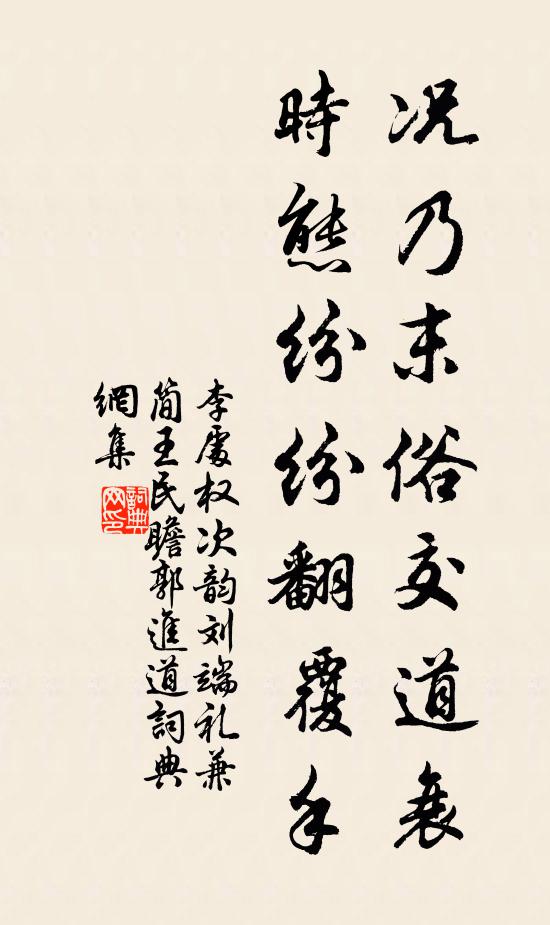 况乃末俗交道衰
時態紛紛翻覆手
李處权次韵刘端礼兼
简王民瞻郭進道詞典
網集
詞典
网印